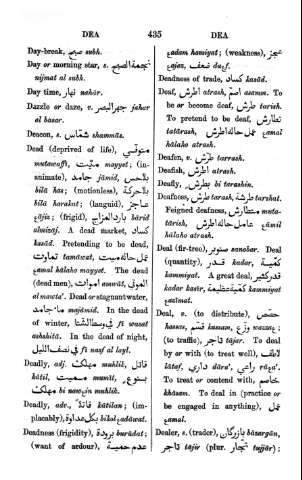 DEA 435 DEA
Day-break, صبح subh.
Day or morning star, s. نجمة الصبح
nijmat al subh.
Day time, نهار nahâr.
Dazzle or daze, v. جهر البصر jaher
al basar.
Deacon, s. شماس shammâs.
Dead (deprived of life),
mutawaffi, ميت mayyet; (in-
animate), جامد jâmid, بلا حس
bilâ has; (motionless), بلا حركة
bilâ harakat; (languid), عاجز
ʿâjiz; (frigid), بارد المزاج bârid
almizâj. A dead market, كساد
kasâd. Pretending to be dead,
تماوت tamâwat, عمل حاله ميت
ʿamal hâlaho mayyet. The dead
(dead men), اموات amwât, الموتى
al mawta'. Dead or stagnant water,
ما جامد mâ jâmid. In the dead
of winter, في وسط الشتا fi wasat
ashshitâ. In the dead of night,
في نصف الليل fi nasf al layl.
Deadly, adj. مهلك muhlik, قاتل
kâtil, مميت mumît,
مهلك bi nawʿin muhlik.
Deadly, adv. قاتلاً kâtilan; (im-
placably), بكل عداوة bikol ʿadâwat.
Deadness (frigidity), برودة burûdat;
(want of ardour), عدم حمية
ʿadam hamiyat; (weakness), عجز
ʿajaz, ضعف duʿf.
Deadness of trade, كساد kasâd.
Deaf, اطرش atrash, اصم assum. To
be or become deaf, طرش tarish.
To pretend to be deaf, تطارش
tatârash, عمل حاله اطرش ʿamal
hâlaho atrash.
Deafen, v. طرش tarrash.
Deafish, اطرش atrash.
Deafly, بطرش bi tarashin.
Deafness, طرش tarash, طرشة tarshat.
Feigned deafness, متطارش muta-
târish, عامل حاله اطرش ʿâmil
hâlaho atrash.
Deal (fir-tree), صنوبر sanobar. Deal
(quantity), قدر kadar, كمية
kammiyat. A great deal, قدر كثير
kadar kasîr, كمية عظيمة kammiyat
ʿazîmat.
Deal, v. (to distribute), حصص
hassas, قسم kassam, وزع wazaʿ;
(to traffic), تاجر tâjar. To deal
by or with (to treat well), لاطف
lâtaf, داري dâra', راعي râʿa'.
To treat or contend with, خاصم
khâsam. To deal in (practice or
be engaged in anything), عمل
ʿamal.
Dealer, s. (trader), بازركان bâzargân,
تاجر tâjir (plur. تجار tujjâr);